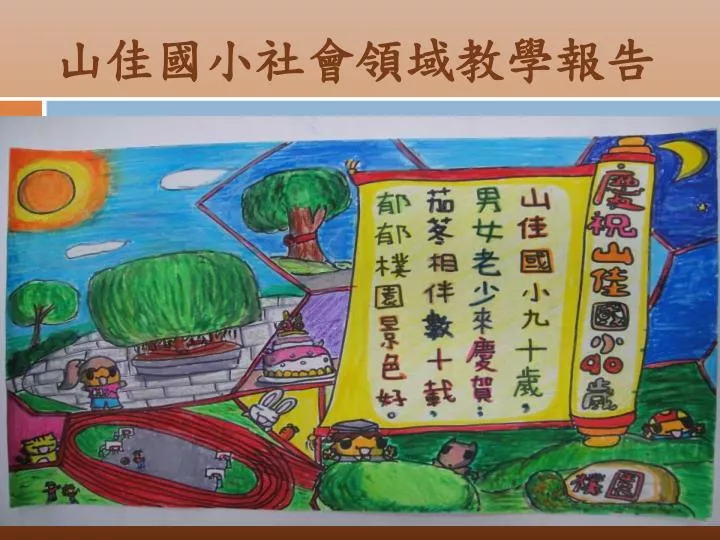 山佳國小社會領域教學報告
慶祝山佳國小90歲
山佳國小九十歲，
男女老少來慶賀；
茄苳相伴數十載，
郁郁樸園景色好。
樸園